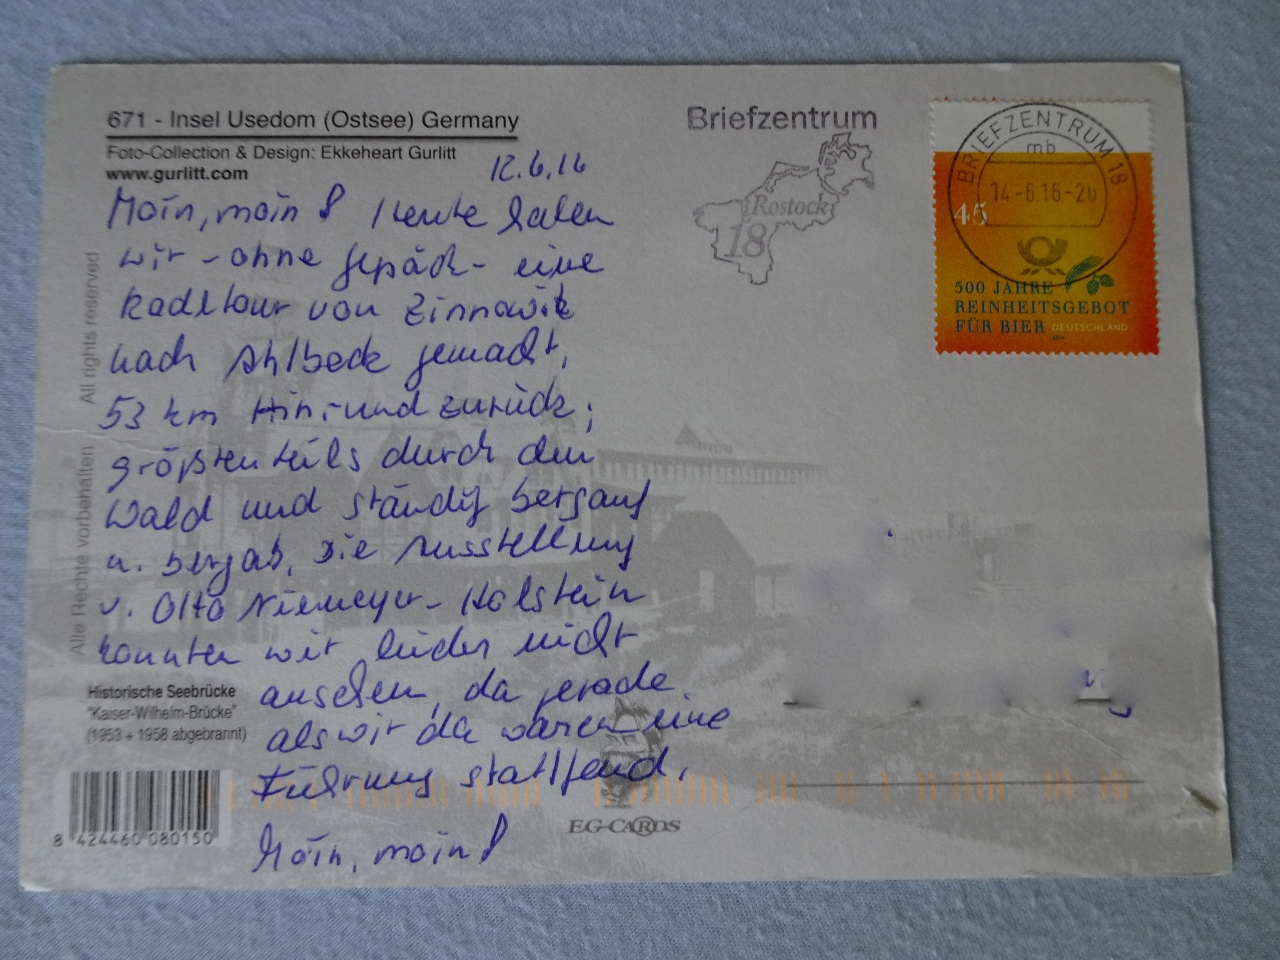 671 - Insel Usedom (Ostsee) Germany
Foto-Collection & Design: Ekkeheart Gurlitt
www.gurlitt.com
12.6.16
Moin, moin! Heute haben
wir - ohne Gepäck - eine
Radltour von Zinnowitz
nach Ahlbeck gemacht,
53 km Hin- und zurück;
größtenteils durch den
Wald und ständig bergauf
u. bergab. Die Ausstellung
v. Otto Niemeyer-Holstein
konnten wir leider nicht
ansehen, da gerade
als wir da waren eine
Führung stattfand.
Moin, moin!
All rights reserved
Alle Rechte vorbehalten
Historische Seebrücke
"Kaiser-Wilhelm-Brücke"
(1953 + 1958 abgebrannt)
8 424460 080150
EG-CARDS
Briefzentrum
Rostock
18
BRIEFZENTRUM 18
mb
14-6.16-20
45
500 JAHRE
REINHEITSGEBOT
FÜR BIER DEUTSCHLAND